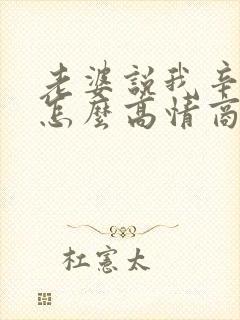 老婆說我辛
怎麼高情商
杜憲太